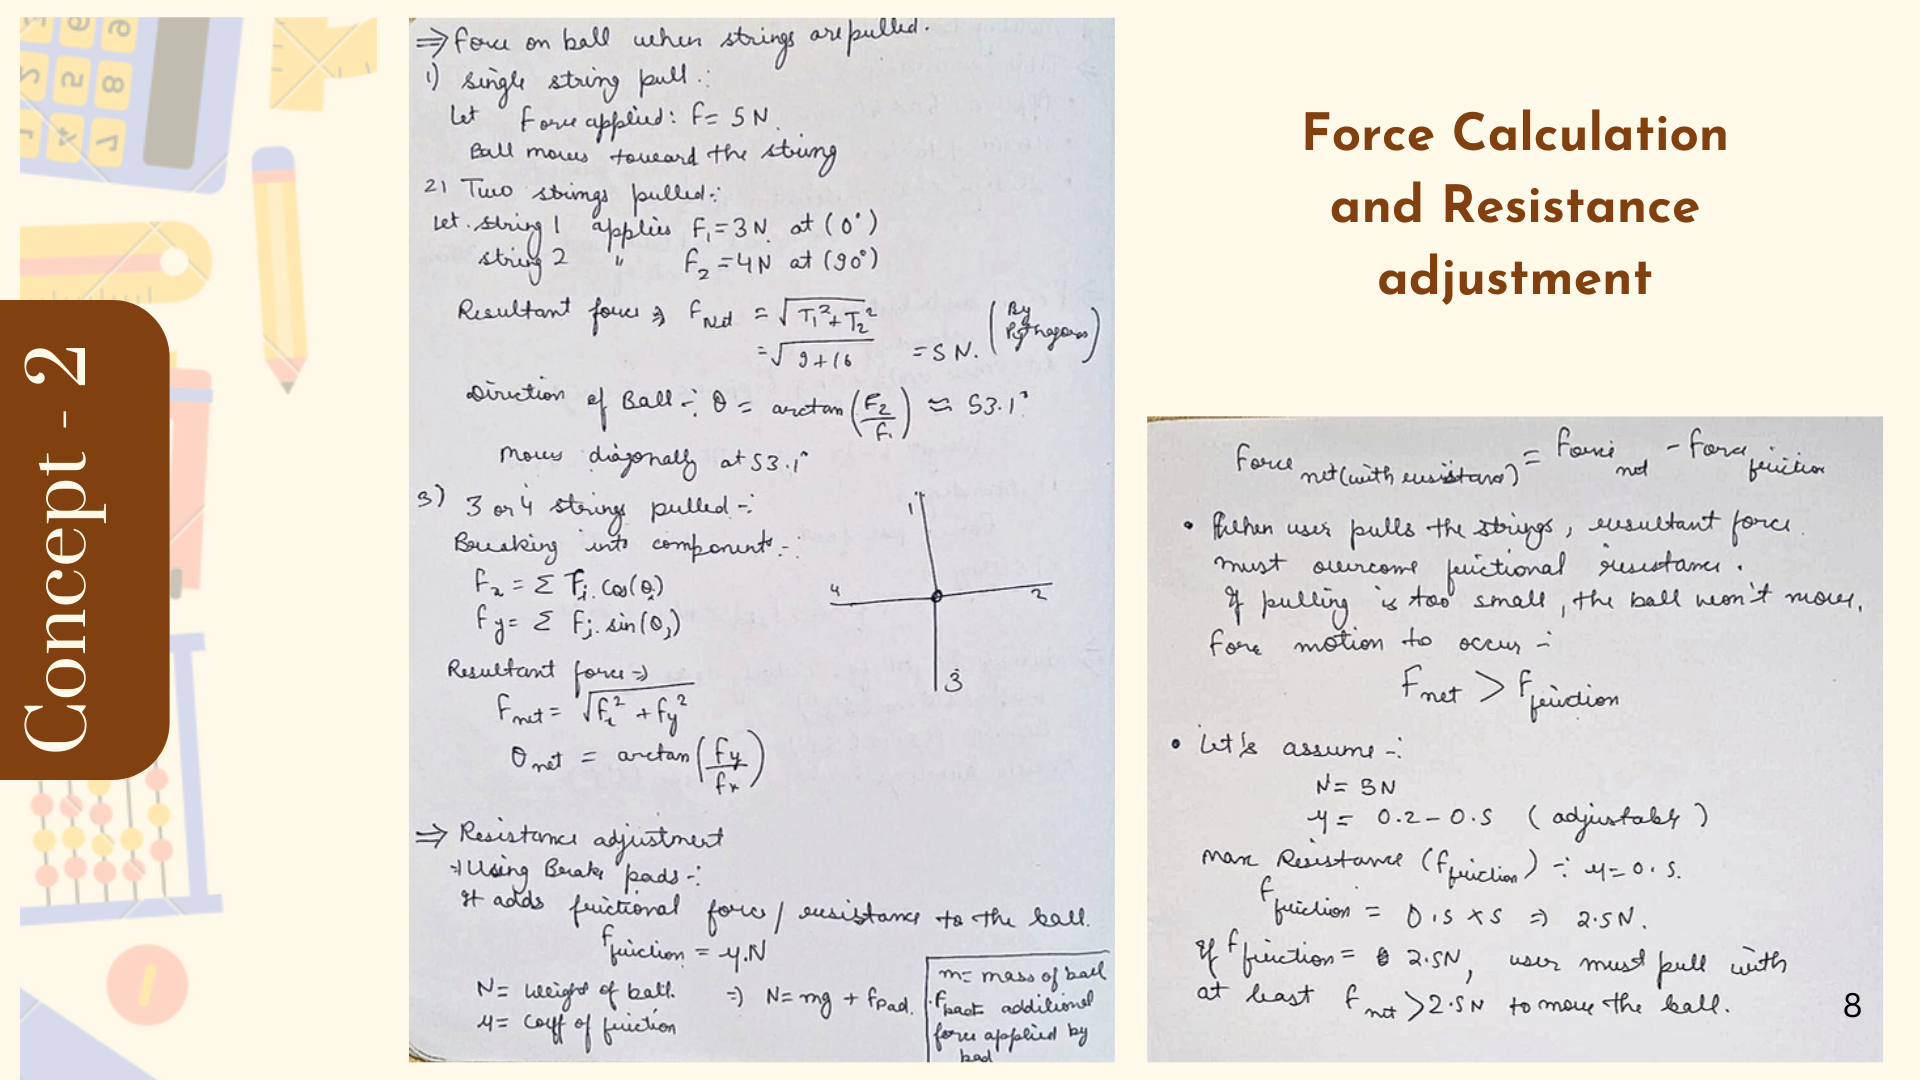 Concept - 2
⇒ Force on ball when strings are pulled.
1) single string pull :
Let Force applied: F = 5 N.
Ball moves toward the string
2) Two strings pulled :
Let string 1 applies F₁ = 3 N at (0°)
string 2 " F₂ = 4N at (90°)
Resultant force ⇒ F Net = √T₁² + T₂² (By Pythagoras)
= √9+16 = 5 N.
Direction of Ball :- θ = arctan (F₂/F₁) ≈ 53.1°
Moves diagonally at 53.1°
3) 3 or 4 strings pulled -:
Breaking into components -:
Fx = Σ Fi. cos(θi)
Fy = Σ Fi. sin(θi)
1
4
2
3
Resultant force ⇒
F net = √Fx² + Fy²
θ net = arctan (Fy/Fx)
⇒ Resistance adjustment
⇒ Using Brake pads -:
It adds frictional force / resistance to the ball.
F friction = μ.N
N = weight of ball. ⇒ N = mg + Fpad.
μ = coeff of friction
m = mass of ball
Fpad = additional
force applied by
pad
Force Calculation
and Resistance
adjustment
Force net (with resistance) = Force net - Force friction
• When user pulls the strings, resultant force
must overcome frictional resistance.
If pulling is too small, the ball won't move.
For motion to occur -:
F net > F friction
• Let's assume -:
N = 5N
μ = 0.2 - 0.5 (adjustable)
Max Resistance (F friction) :- μ = 0.5.
F friction = 0.5 x 5 ⇒ 2.5 N.
If F friction = 2.5N, user must pull with
at least F net > 2.5N to move the ball.
8